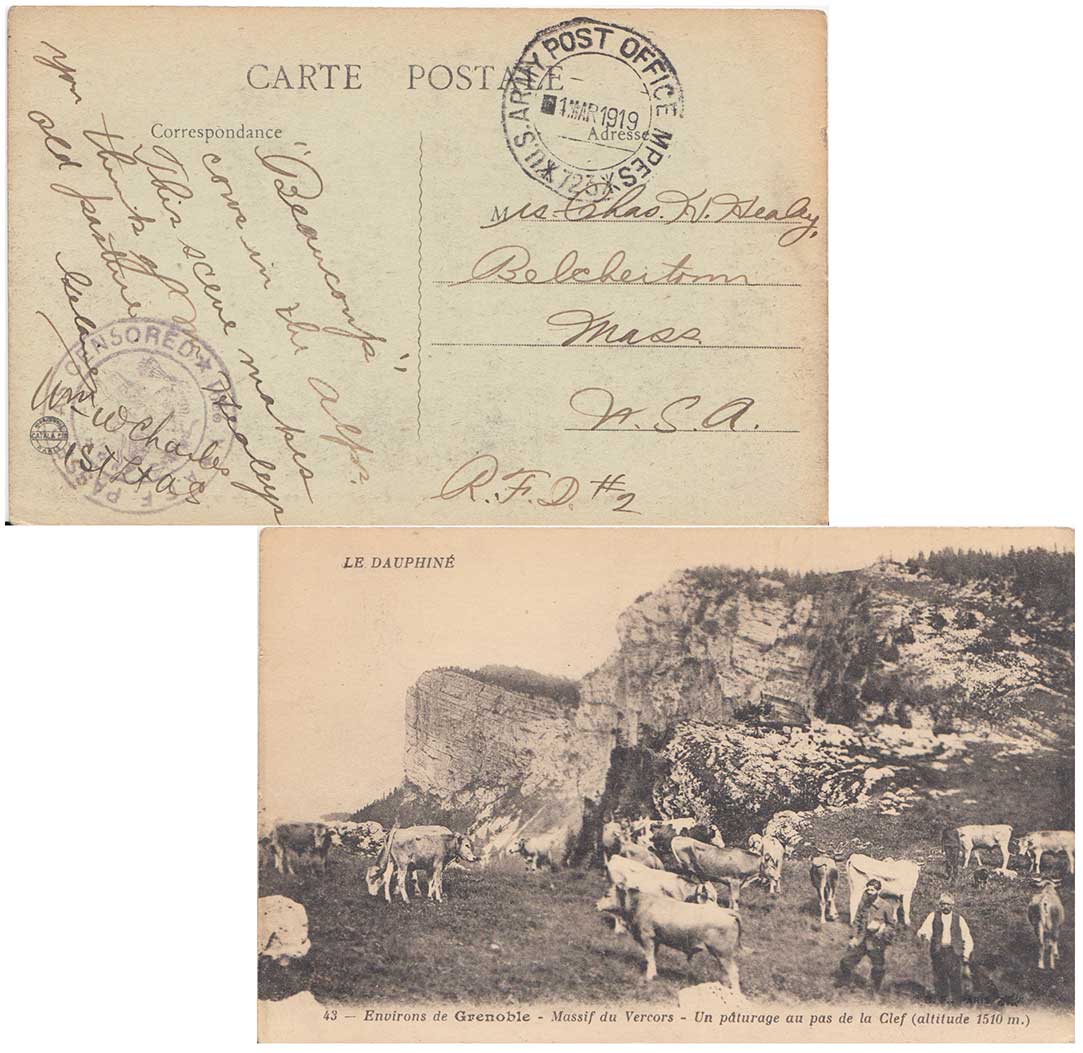 CARTE POSTALE
Correspondance
"Beaucoup"
cows in the alps.
This scene makes
you think of Mr Healeys
old pasture
Wm W Charles
1st Lt A S
A.E.F. PASSED AS CENSORED
CATALA
PARIS
U.S. ARMY POST OFFICE MPES
1 MAR 1919
723
Adresse
Mrs. Chas. H. Healey,
Belchertown
Mass
U.S.A.
R.F.D. #2
LE DAUPHINÉ
43 — Environs de Grenoble - Massif du Vercors - Un pâturage au pas de la Clef (altitude 1510 m.)